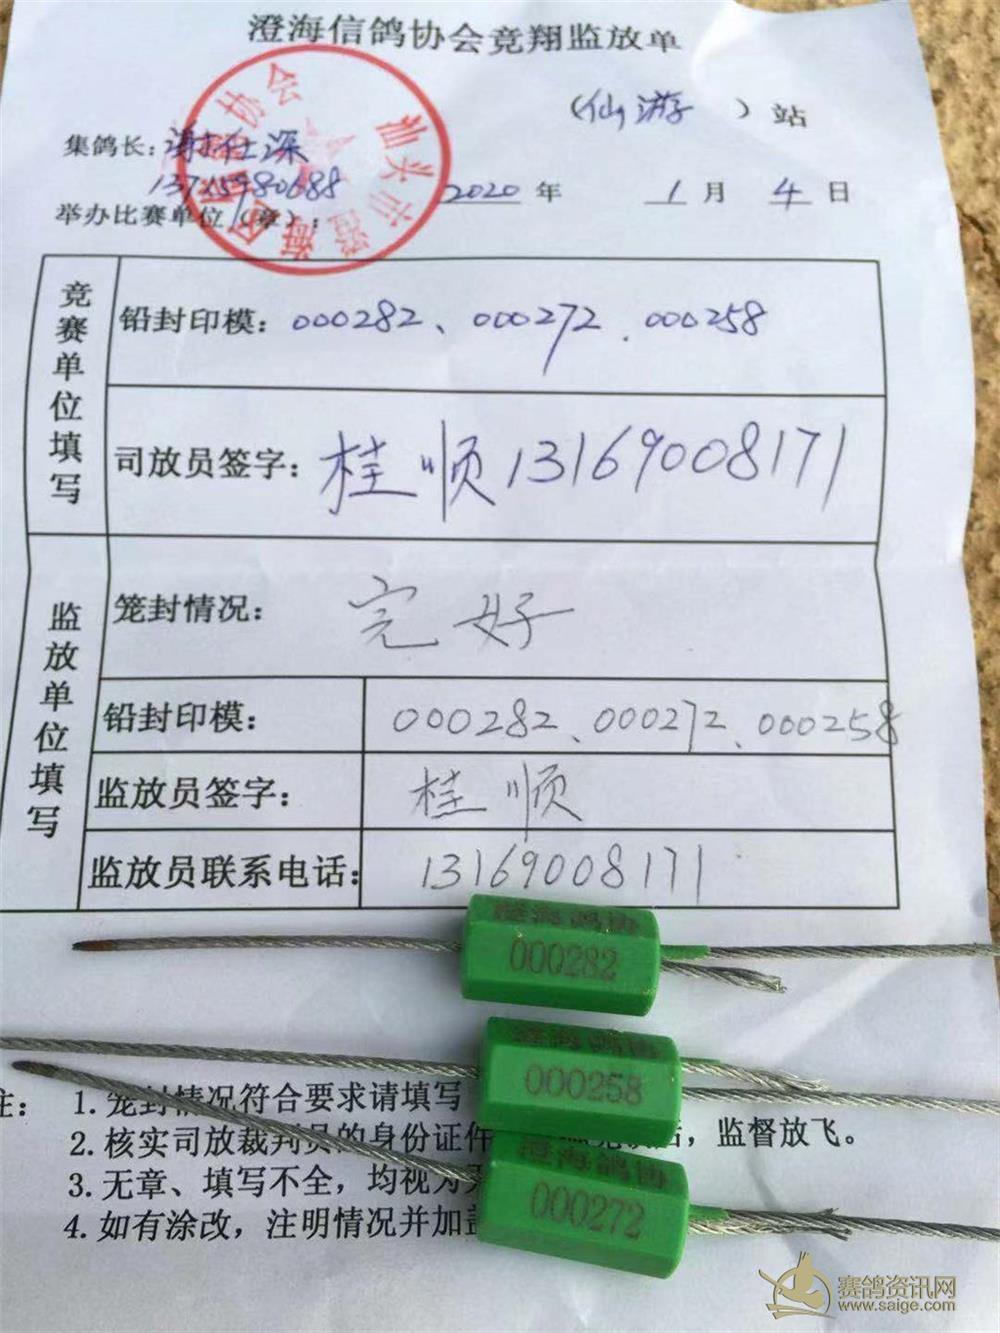 澄海信鸽协会竞翔监放单
（仙游）站
集鸽长：谢仕深
举办比赛单位（章）：
2020 年 1 月 4 日
汕头市澄海区信鸽协会
竞赛单位填写
铅封印模：000282、000272.000258
司放员签字：桂顺13169008171
监放单位填写
笼封情况：完好
铅封印模：000282、000272、000258
监放员签字：桂顺
监放员联系电话：13169008171
澄海鸽协
000282
澄海鸽协
000258
澄海鸽协
000272
注：1.笼封情况符合要求请填写
2.核实司放裁判员的身份证件 后，监督放飞。
3.无章、填写不全，均视为无
4.如有涂改，注明情况并加盖
赛鸽资讯网
www.saige.com